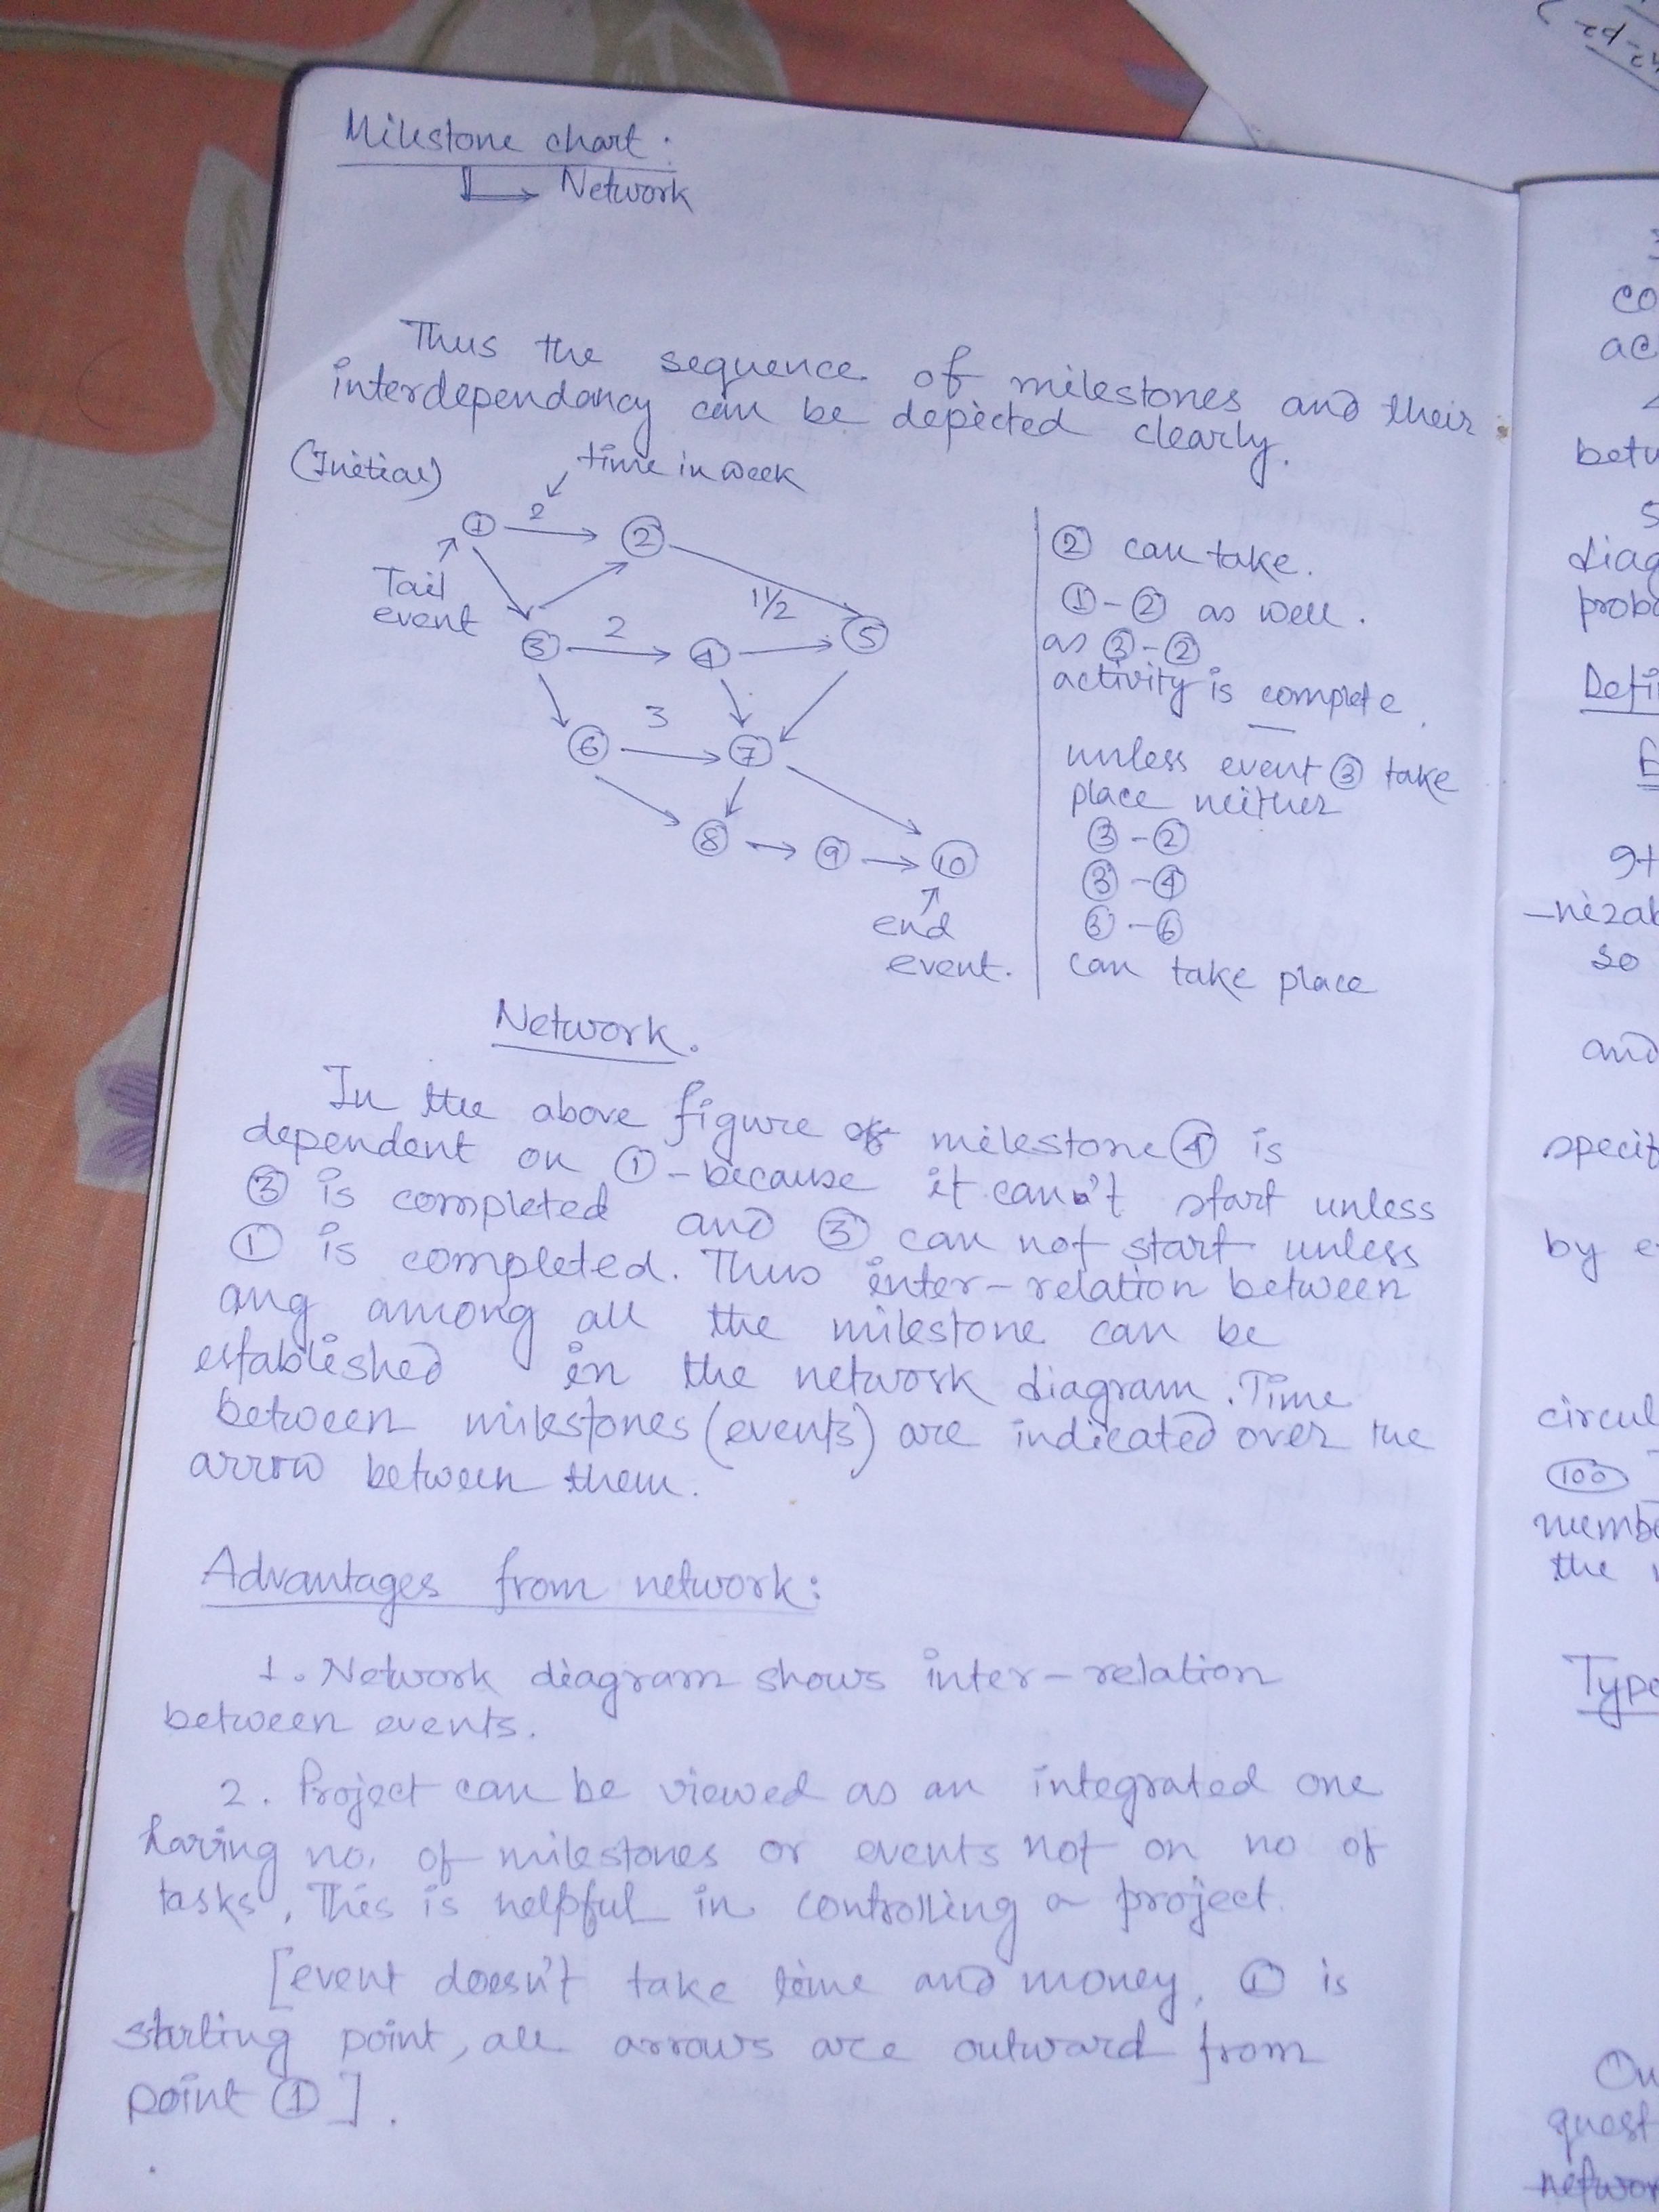 Milestone chart:
Network
Thus the sequence of milestones and their
interdependancy can be depicted clearly.
(Initial)
time in week
① 2 ②
Tail
event
1 1/2
③ 2 ④ ⑤
3
⑥ ⑦
⑧ ⑨ ⑩
end
event.
② can take.
①-② as well.
as ③-②
activity is complete.
unless event ③ take
place neither
③-②
③-④
③-⑥
can take place
Network.
In the above figure milestone ④ is
dependent on ①-because it can't start unless
③ is completed and ③ can not start unless
① is completed. Thus inter-relation between
ang among all the milestone can be
established in the network diagram. Time
between milestones (events) are indicated over the
arrow between them.
Advantages from network:
1. Network diagram shows inter-relation
between events.
2. Project can be viewed as an integrated one
having no. of milestones or events not on no of
tasks, This is helpful in controlling a project.
[event doesn't take time and money, ① is
starting point, all arrows are outward from
point ①].
co
ac
betw
5
diag
prob
Defi
-nizab
so
and
specif
by e
circul
100
numbe
the
Type
On
quest
networ